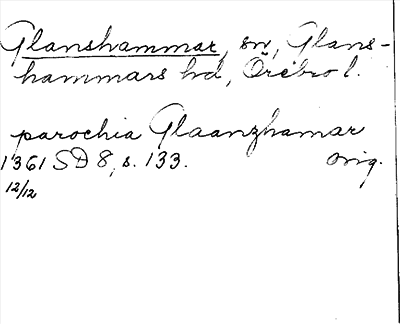 Glanshammar, sn, Glans-
hammars hd, Örebro l.
parochia Glaanzhamar
1361 SD 8, s. 133. orig.
12/12